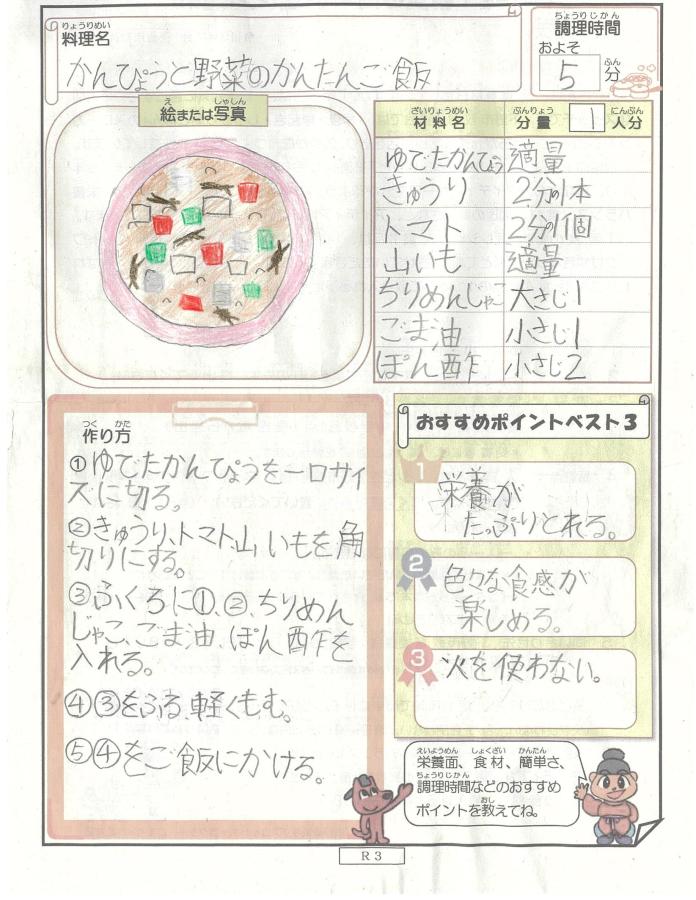 料理名
りょうりめい
かんぴょうと野菜のかんたんご飯
調理時間
ちょうりじかん
およそ
5 分
ぷん
絵または写真
え しゃしん
材料名 分量 1 人分
ざいりょうめい ぶんりょう にんぶん
ゆでたかんぴょう 適量
きゅうり 2分の1本
トマト 2分の1個
山いも 適量
ちりめんじゃこ 大さじ1
ごま油 小さじ1
ぽん酢 小さじ2
作り方
つく かた
①ゆでたかんぴょうを一口サイ
ズに切る。
②きゅうり、トマト、山いもを角
切りにする。
③ふくろに①、②、ちりめん
じゃこ、ごま油、ぽん酢を
入れる。
④③をふる、軽くもむ。
⑤④をご飯にかける。
おすすめポイントベスト3
1
栄養が
たっぷりとれる。
2
色々な食感が
楽しめる。
3
火を使わない。
えいようめん しょくざい かんたん
栄養面、食材、簡単さ、
ちょうりじかん
調理時間などのおすすめ
おし
ポイントを教えてね。
R3